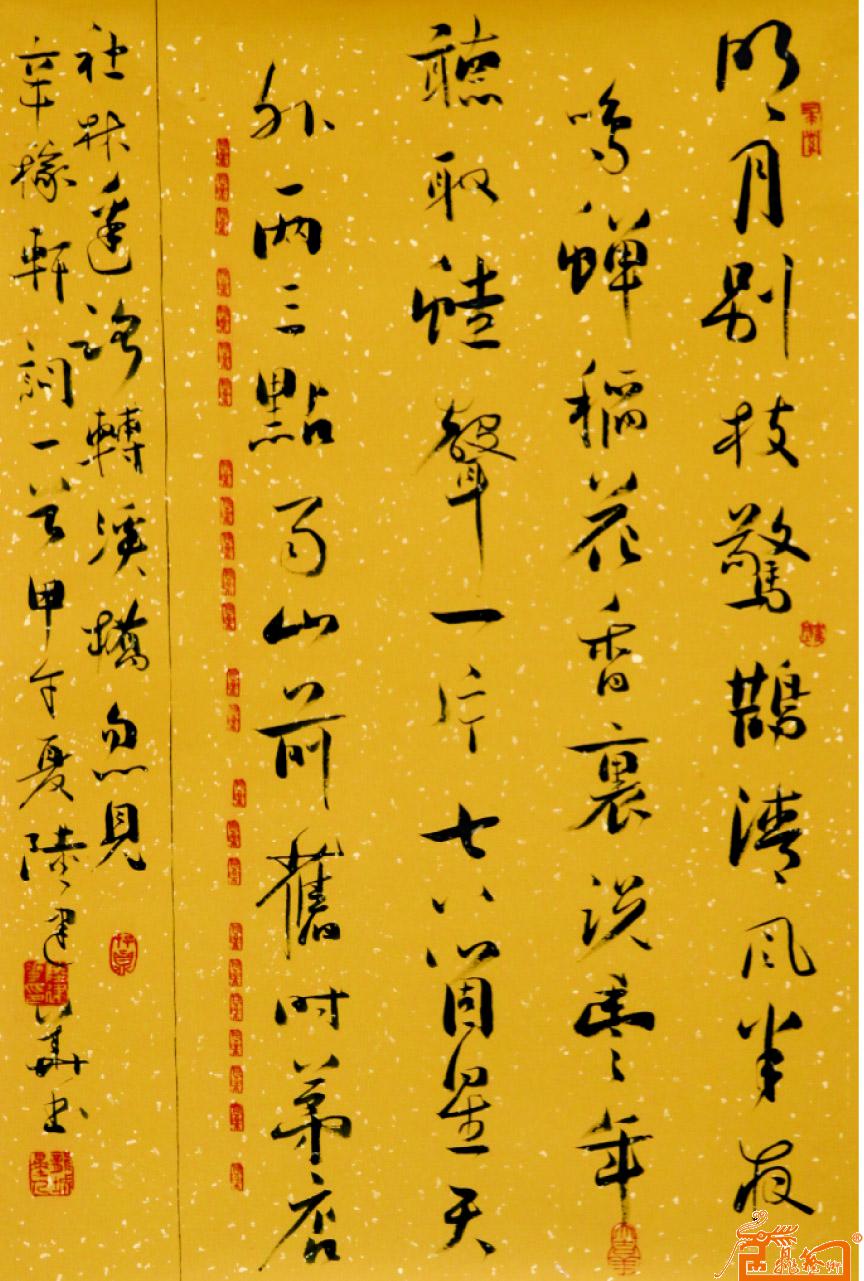 明月别枝驚鵲清風半夜
鳴蟬稻花香裏説豊年
聽取蛙聲一片七八個星天
外兩三點雨山前舊時茅店
社林邊路轉溪橋忽見
辛稼軒詞一首甲午夏陸建華書